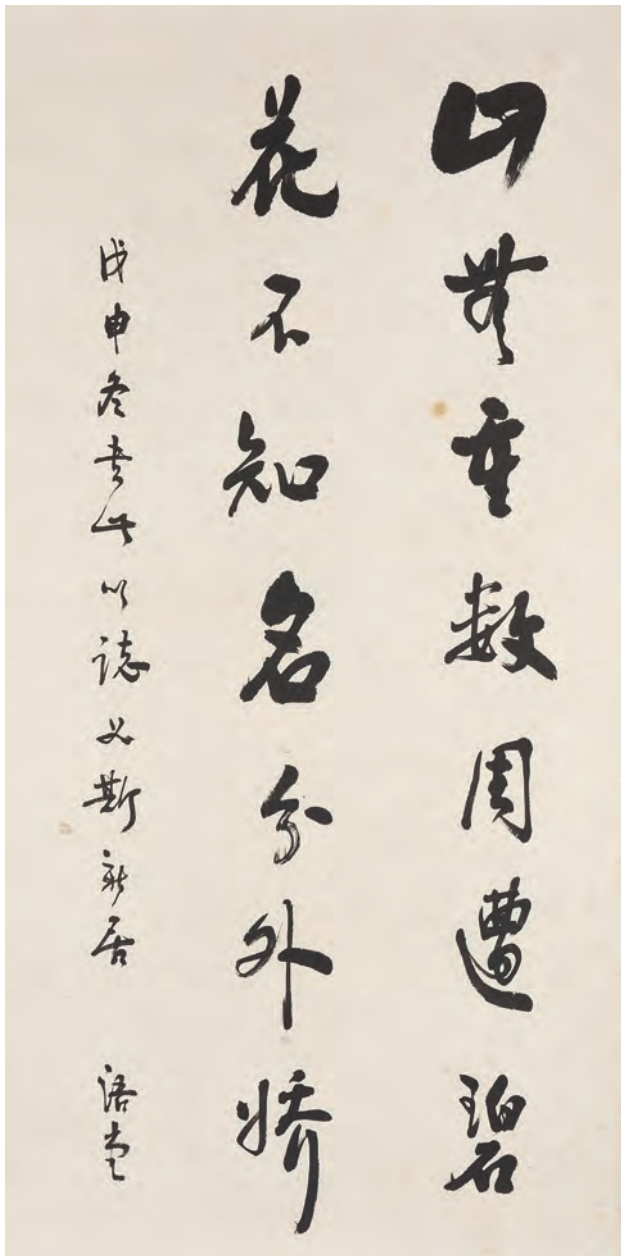 山無重數周遭碧
花不知名分外嬌
戊申冬書此以誌如斯新居 語堂